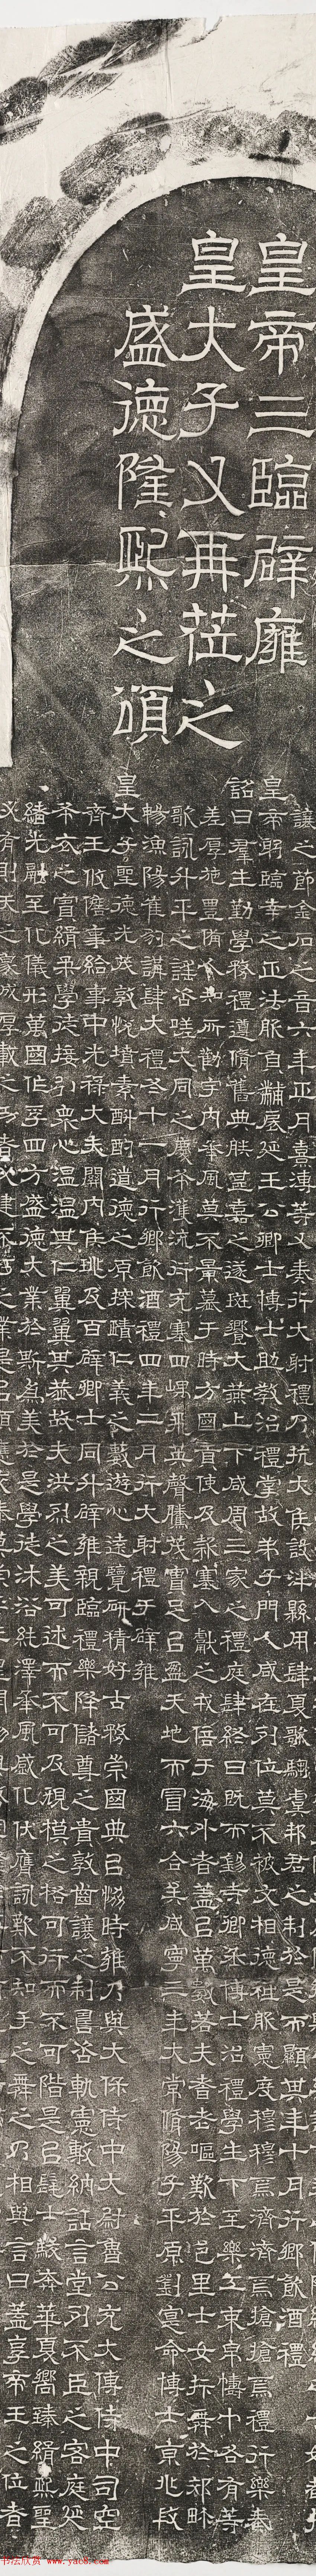 皇帝三臨辟雍
皇大子又再莅之
盛德隆熙之頌
讓之節金石之音六年正月熹溥等又奏行大射禮乃抗大侯設泮縣用肆夏歌騶虞邦君之制於是而顯其年十月行鄉飲酒禮
皇帝躬臨幸之正法服負黼扆延王公卿士博士助教治禮掌故弟子門人咸在列位莫不被文相德祖服憲度穆穆焉濟濟焉搶搶焉禮行樂奏
詔曰羣生勤學務禮遵脩舊典朕甚嘉之遂班饗大燕上下咸周三家之禮庭肆終日既而錫寺卿丞博士治禮學生下至樂工束帛幘巾各有等
差厚施豊備人知所勸宇內承風莫不景慕于時方國貢使及款塞入獻之戎倍于海外者蓋以萬數若夫耆老嘔歎於邑里士女抃舞於郊畛
歌詠升平之謠咨嗟大同之慶布濩流衍充塞四嵎飛英聲騰茂實足以盈天地而冒六合矣咸寧三年大常脩陽子平原劉寔命博士京兆段
暢漁陽崔豹講肄大禮冬十一月行鄉飲酒禮四年二月行大射禮于辟雍
皇大子聖德光茂敦悅墳素斟酌道德之原探賾仁義之藪遊心遠覽研精好古務崇國典以協時雍乃與大保侍中大尉魯公充大傅侍中司空
齊王攸詹事給事中光祿大夫關內侯珧及百辟卿士同升辟雍親臨禮樂降儲尊之貴敦齒讓之制覃咨軌憲敷納話言堂列不臣之客庭延
布衣之賓緝柔學徒接引衆心温温其仁翼翼其恭故夫洪烈之美可述而不可及規模之格可行而不可階是以髦士駿奔華夏嚮臻緝熙聖
緒光融至化儀形萬國作孚四方盛德大業於斯爲美於是學徒沐浴純澤承風感化伏膺詠歎不知手之舞之乃相與言曰蓋享帝王之位者
必有則天之象成厚載之功者
书法欣赏 www.yac8.com